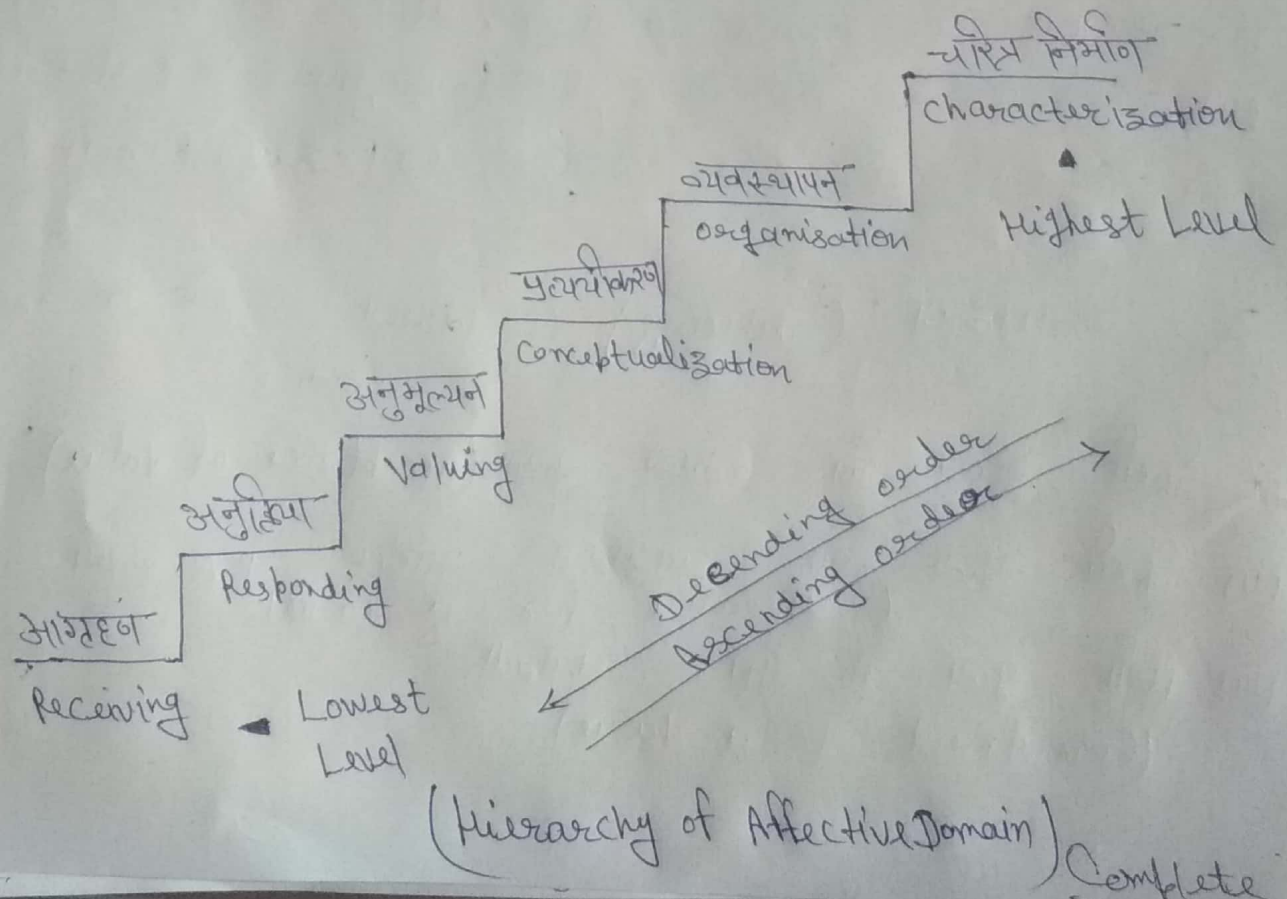 चरित्र निर्माण
Characterization
Highest Level
व्यवस्थापन
organisation
प्रत्ययीकरण
Conceptualization
अनुमूल्यन
Valuing
अनुक्रिया
Responding
आग्रहण
Receiving
Lowest
Level
Decending order
Ascending order
(Hierarchy of Affective Domain)
Complete